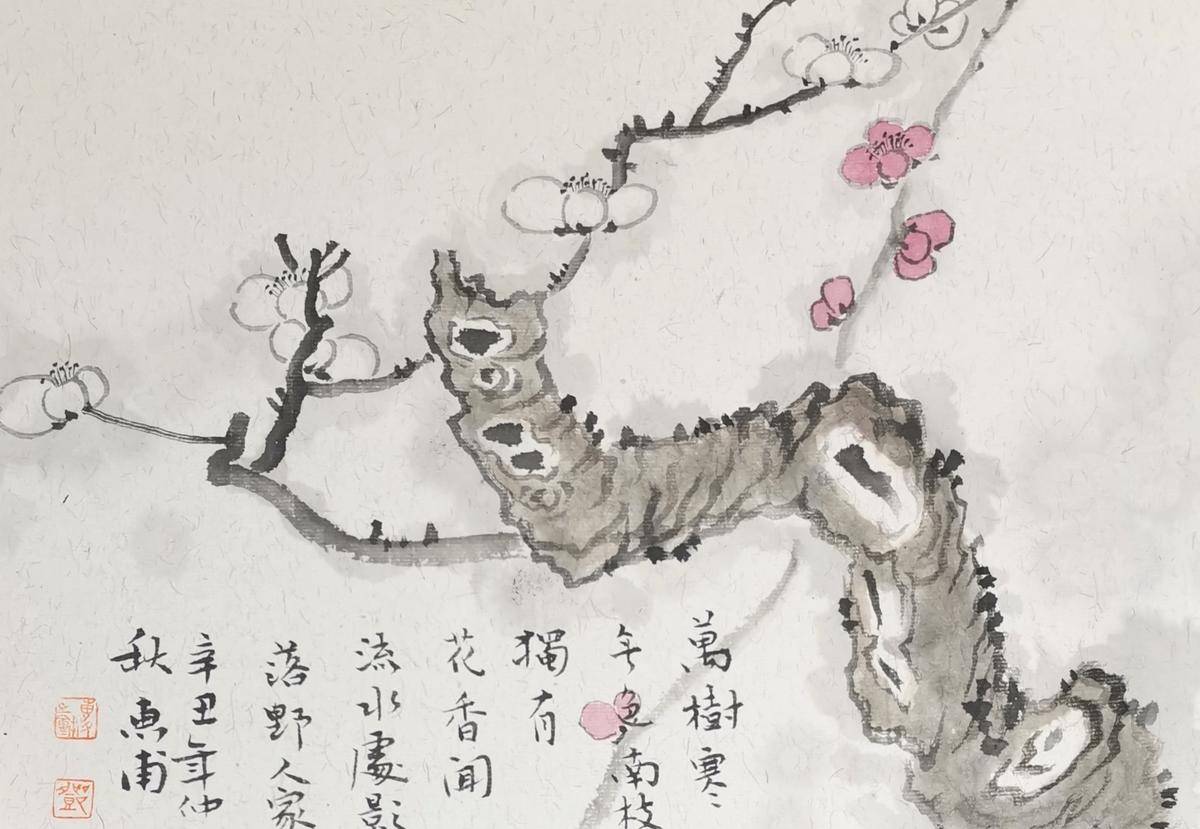 萬樹寒
無色南枝
獨有
花香聞
流水處影
落野人家
辛丑年仲
秋惠甫